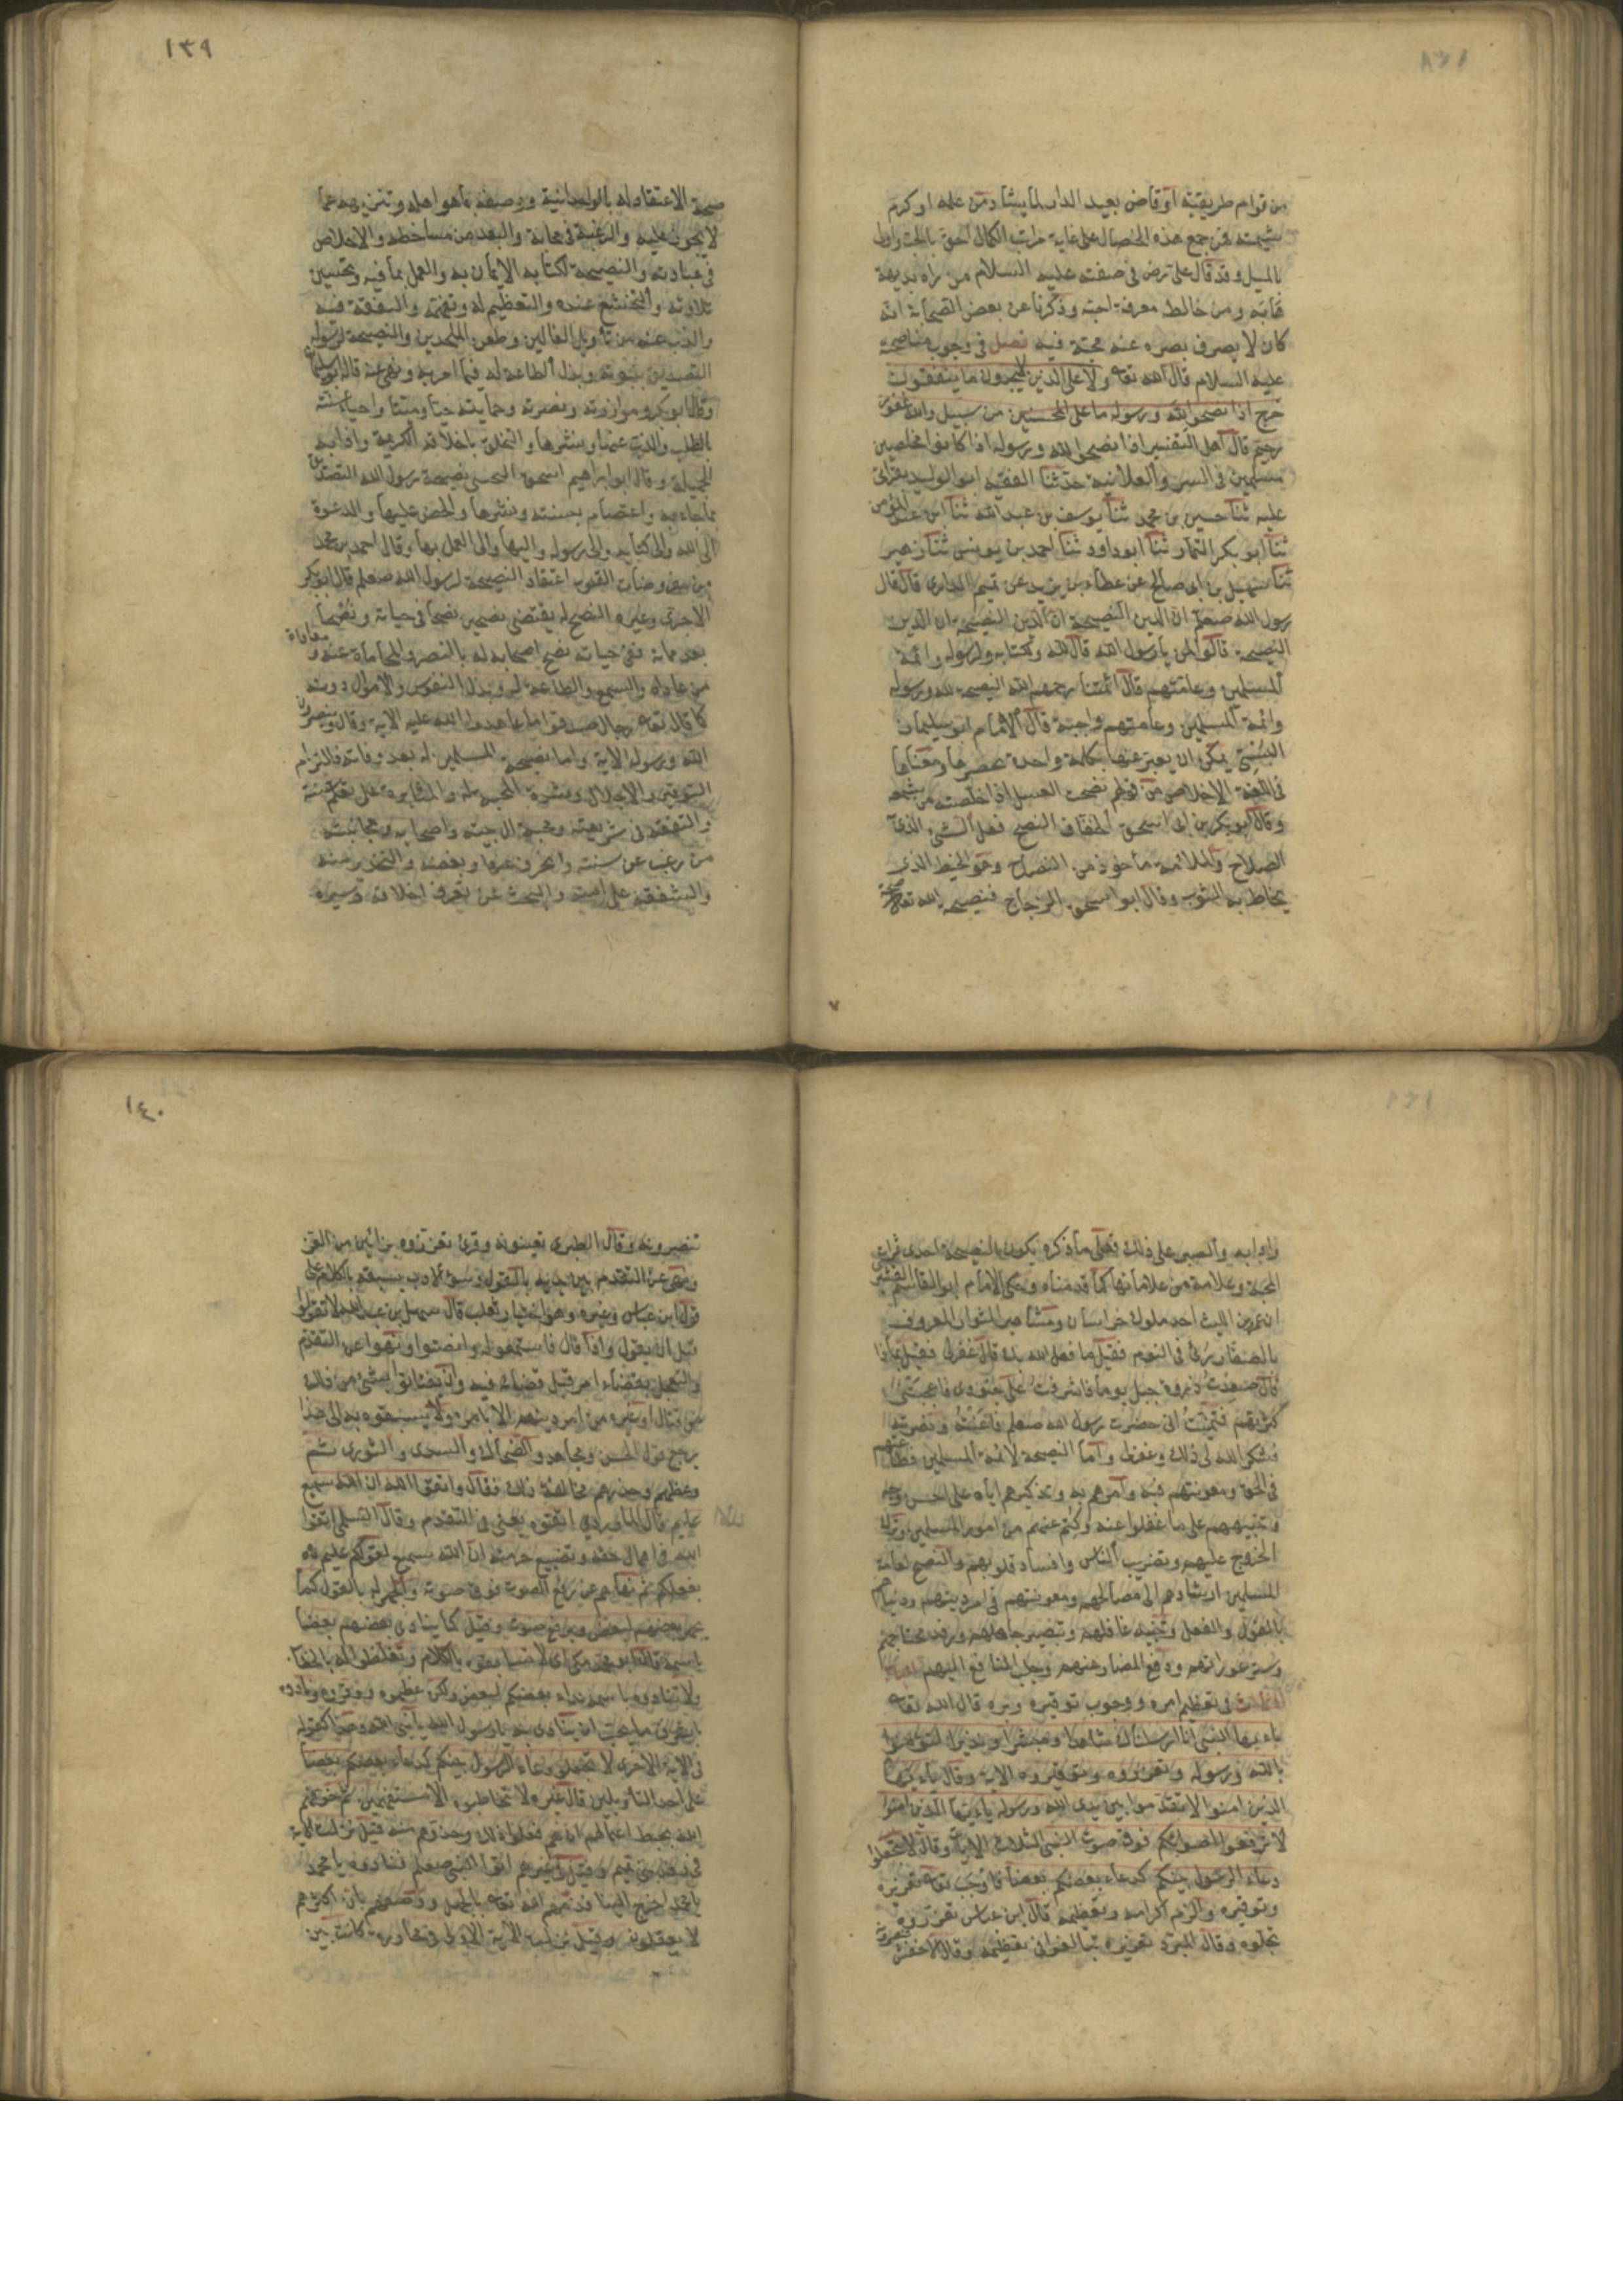 من قوام طريقته او قاض بعيد الدار لما يشاد من علمه او كرم
شيمته فمن جمع هذه الخصال على غاية مراتب الكمال احق بالحب واولى
بالميل وقد قال على رض في صفته عليه السلام من راه بديهة
هابه ومن خالطه معرفة احبه وذكرنا عن بعض الصحابة انه
كان لا يصرف بصره عنه محبة فيه فصل في وجوب مناصحته
عليه السلام قال الله تعا ولا على الذين لا يجدون ما ينفقون
حرج اذا نصحوا لله ورسوله ما على المحسنين من سبيل والله غفور
رحيم قال اهل التفسير اذا نصحوا لله ورسوله اذا كانوا مخلصين
مسلمين في السر والعلانية حدثنا الفقيه ابو الوليد بقراتى
عليه ثنا حسين بن محمد ثنا يوسف بن عبد الله ثنا ابن عبد المؤمن
ثنا ابو بكر التمار ثنا ابو داود ثنا احمد بن يونس ثنا زهير
ثنا سهيل بن ابى صالح عن عطاء بن يزيد عن تميم الدارى قال قال
رسول الله صلعم ان الدين النصيحة ان الدين النصيحة ان الدين
النصيحة قالوا لمن يا رسول الله قال لله ولكتابه ولرسوله وائمة
المسلمين وعامتهم قال ائمتنا رحمهم الله النصيحة لله ورسوله
وائمة المسلمين وعامتهم واجبة قال الامام ابو سليمان
البستى يمكن ان يعبر عنها بكلمة واحدة تحصرها ومعناها
في اللغة الاخلاص من قولهم نصحت العسل اذا خلصته من شمعه
وقال ابو بكر بن ابى اسحق الخفاف النصح فعل الشئ الذى به
الصلاح والملائمة مأخوذ من النصاح وهو الخيط الذى
يخاط به الثوب وقال ابو اسحق الزجاج فنصيحة الله تعا
١٣٩
صحة الاعتقاد له بالوحدانية ووصفه بما هو اهله وتنزيهه عما
لا يجوز عليه والرغبة في محابه والبعد من مساخطه والاخلاص
في عبادته والنصيحة لكتابه الايمان به والعمل بما فيه وتحسين
تلاوته والتخشع عنده والتعظيم له وتفهمه والتفقه فيه
والذب عنه من تأويل الغالين وطعن الملحدين والنصيحة لرسوله
التصديق بنبوته وبذل الطاعة له فيما امر به ونهى عنه قاله ابو سليمان
وقال ابو بكر وموازرته ونصرته وحمايته حيا وميتا واحياء سنته
بالطلب والذب عنها ونشرها والتخلق باخلاقه الكريمة وادابه
الجميلة وقال ابو ابراهيم اسحق التجيبى نصيحة رسول الله التصديق
بما جاء به والاعتصام بسنته ونشرها والحض عليها والدعوة
الى الله والى كتابه والى رسوله واليها والى العمل بها وقال احمد بن محمد
من مفروضات القلوب اعتقاد النصيحة لرسول الله صلعم قال ابو بكر
الاجرى وغيره النصح له يقتضى نصحين نصحا في حياته ونصحا
بعد مماته ففى حياته نصح اصحابه له بالنصر والمحاماة عنه ومعاداة
من عاداه والسمع والطاعة له وبذل النفوس والاموال دونه
كما قال تعا رجال صدقوا ما عاهدوا الله عليه الاية وقال وينصرون
الله ورسوله الاية واما نصيحة المسلمين له بعد وفاته فالتزام
التوقير والاجلال وشدة المحبة له والمثابرة على تعلم سنته
والتفقه في شريعته ومحبة ال بيته واصحابه ومجانبة
من رغب عن سنته وانحرف عنها وبغضه والتحذير منه
والشفقة على امته والبحث عن تعرف اخلاقه وسيره
وادابه والصبر على ذلك فعلى ما ذكره يكون النصيحة احدى ثمرات
المحبة وعلامة من علاماتها كما قدمناه وحكى الامام ابو القاسم القشيرى
ان عمرو بن الليث احد ملوك خراسان ومشاهير الثوار المعروف
بالصفار رئى في النوم فقيل ما فعل الله بك قال غفر لى فقيل بماذا
قال صعدت ذروة جبل يوما فاشرفت على جنودى فاعجبتنى
كثرتهم فتمنيت انى حضرت رسول الله صلعم فاعنته ونصرته
فشكر الله لى ذلك وغفر لى واما النصيحة لائمة المسلمين فطاعتهم
في الحق ومعونتهم فيه وامرهم به وتذكيرهم اياه على احسن وجه
وتنبيههم على ما غفلوا عنه وكتم عنهم من امور المسلمين وترك
الخروج عليهم وتضريب الناس وافساد قلوبهم والنصح لعامة
المسلمين ارشادهم الى مصالحهم ومعونتهم في امر دينهم ودنياهم
بالقول والفعل وتنبيه غافلهم وتبصير جاهلهم ورفد محتاجهم
وستر عوراتهم ودفع المضار عنهم وجلب المنافع اليهم الباب
الثالث في تعظيم امره ووجوب توقيره وبره قال الله تعا
يا ايها النبى انا ارسلناك شاهدا ومبشرا ونذيرا لتؤمنوا
بالله ورسوله وتعزروه وتوقروه الاية وقال يا ايها
الذين امنوا لا تقدموا بين يدى الله ورسوله يا ايها الذين امنوا
لا ترفعوا اصواتكم فوق صوت النبى الثلاث الايات وقال لا تجعلوا
دعاء الرسول بينكم كدعاء بعضكم بعضا فاوجب تعا تعزيره
وتوقيره والزم اكرامه وتعظيمه قال ابن عباس تعزروه
تجلوه وقال المبرد تعزروه تبالغوا في تعظيمه وقال الاخفش
١٤٠
تنصرونه وقال الطبرى تعينونه وقرئ تعززوه بزائين من العز
ونهى عن التقدم بين يديه بالقول وسوء الادب بسبقه بالكلام على
قول ابن عباس وغيره وهو اختيار ثعلب قال سهل بن عبد الله لا تقولوا
قبل ان يقول واذا قال فاستمعوا له وانصتوا ونهوا عن التقدم
والتعجل بقضاء امر قبل قضائه فيه وان يفتاتوا بشئ من ذلك
من قتال او غيره من امر دينهم الا بامره ولا يسبقوه به الى هذا
يرجع قول الحسن ومجاهد والضحاك والسدى والثورى ثم
وعظهم وحذرهم مخالفة ذلك فقال واتقوا الله ان الله سميع
عليم قال الماوردى اتقوه يعنى في التقدم وقال السلمى اتقوا
الله في اهمال حقه وتضييع حرمته ان الله سميع لقولكم عليم
بفعلكم ثم نهاهم عن رفع الصوت فوق صوته والجهر له بالقول كما
يجهر بعضهم لبعض ويرفع صوته وقيل كما ينادى بعضهم بعضا
باسمه قال ابو محمد مكى اى لا تسابقوه بالكلام وتغلظوا له بالخطاب
ولا تنادوه باسمه نداء بعضكم لبعض ولكن عظموه ووقروه ونادوه
باشرف ما يحب ان ينادى به يا رسول الله يا نبى الله وهذا كقوله
في الاية الاخرى لا تجعلوا دعاء الرسول بينكم كدعاء بعضكم بعضا
على احد التأويلين قال غيره لا تخاطبوه الا مستفهمين ثم خوفهم
الله بحبط اعمالهم ان هم فعلوا ذلك وحذرهم منه قيل نزلت الاية
في وفد بنى تميم وقيل في غيرهم اتوا النبى صلعم فنادوه يا محمد
يا محمد اخرج الينا فذمهم الله تعا بالجهل ووصفهم بان اكثرهم
لا يعقلون وقيل نزلت الاية الاولى في محاورة كانت بين